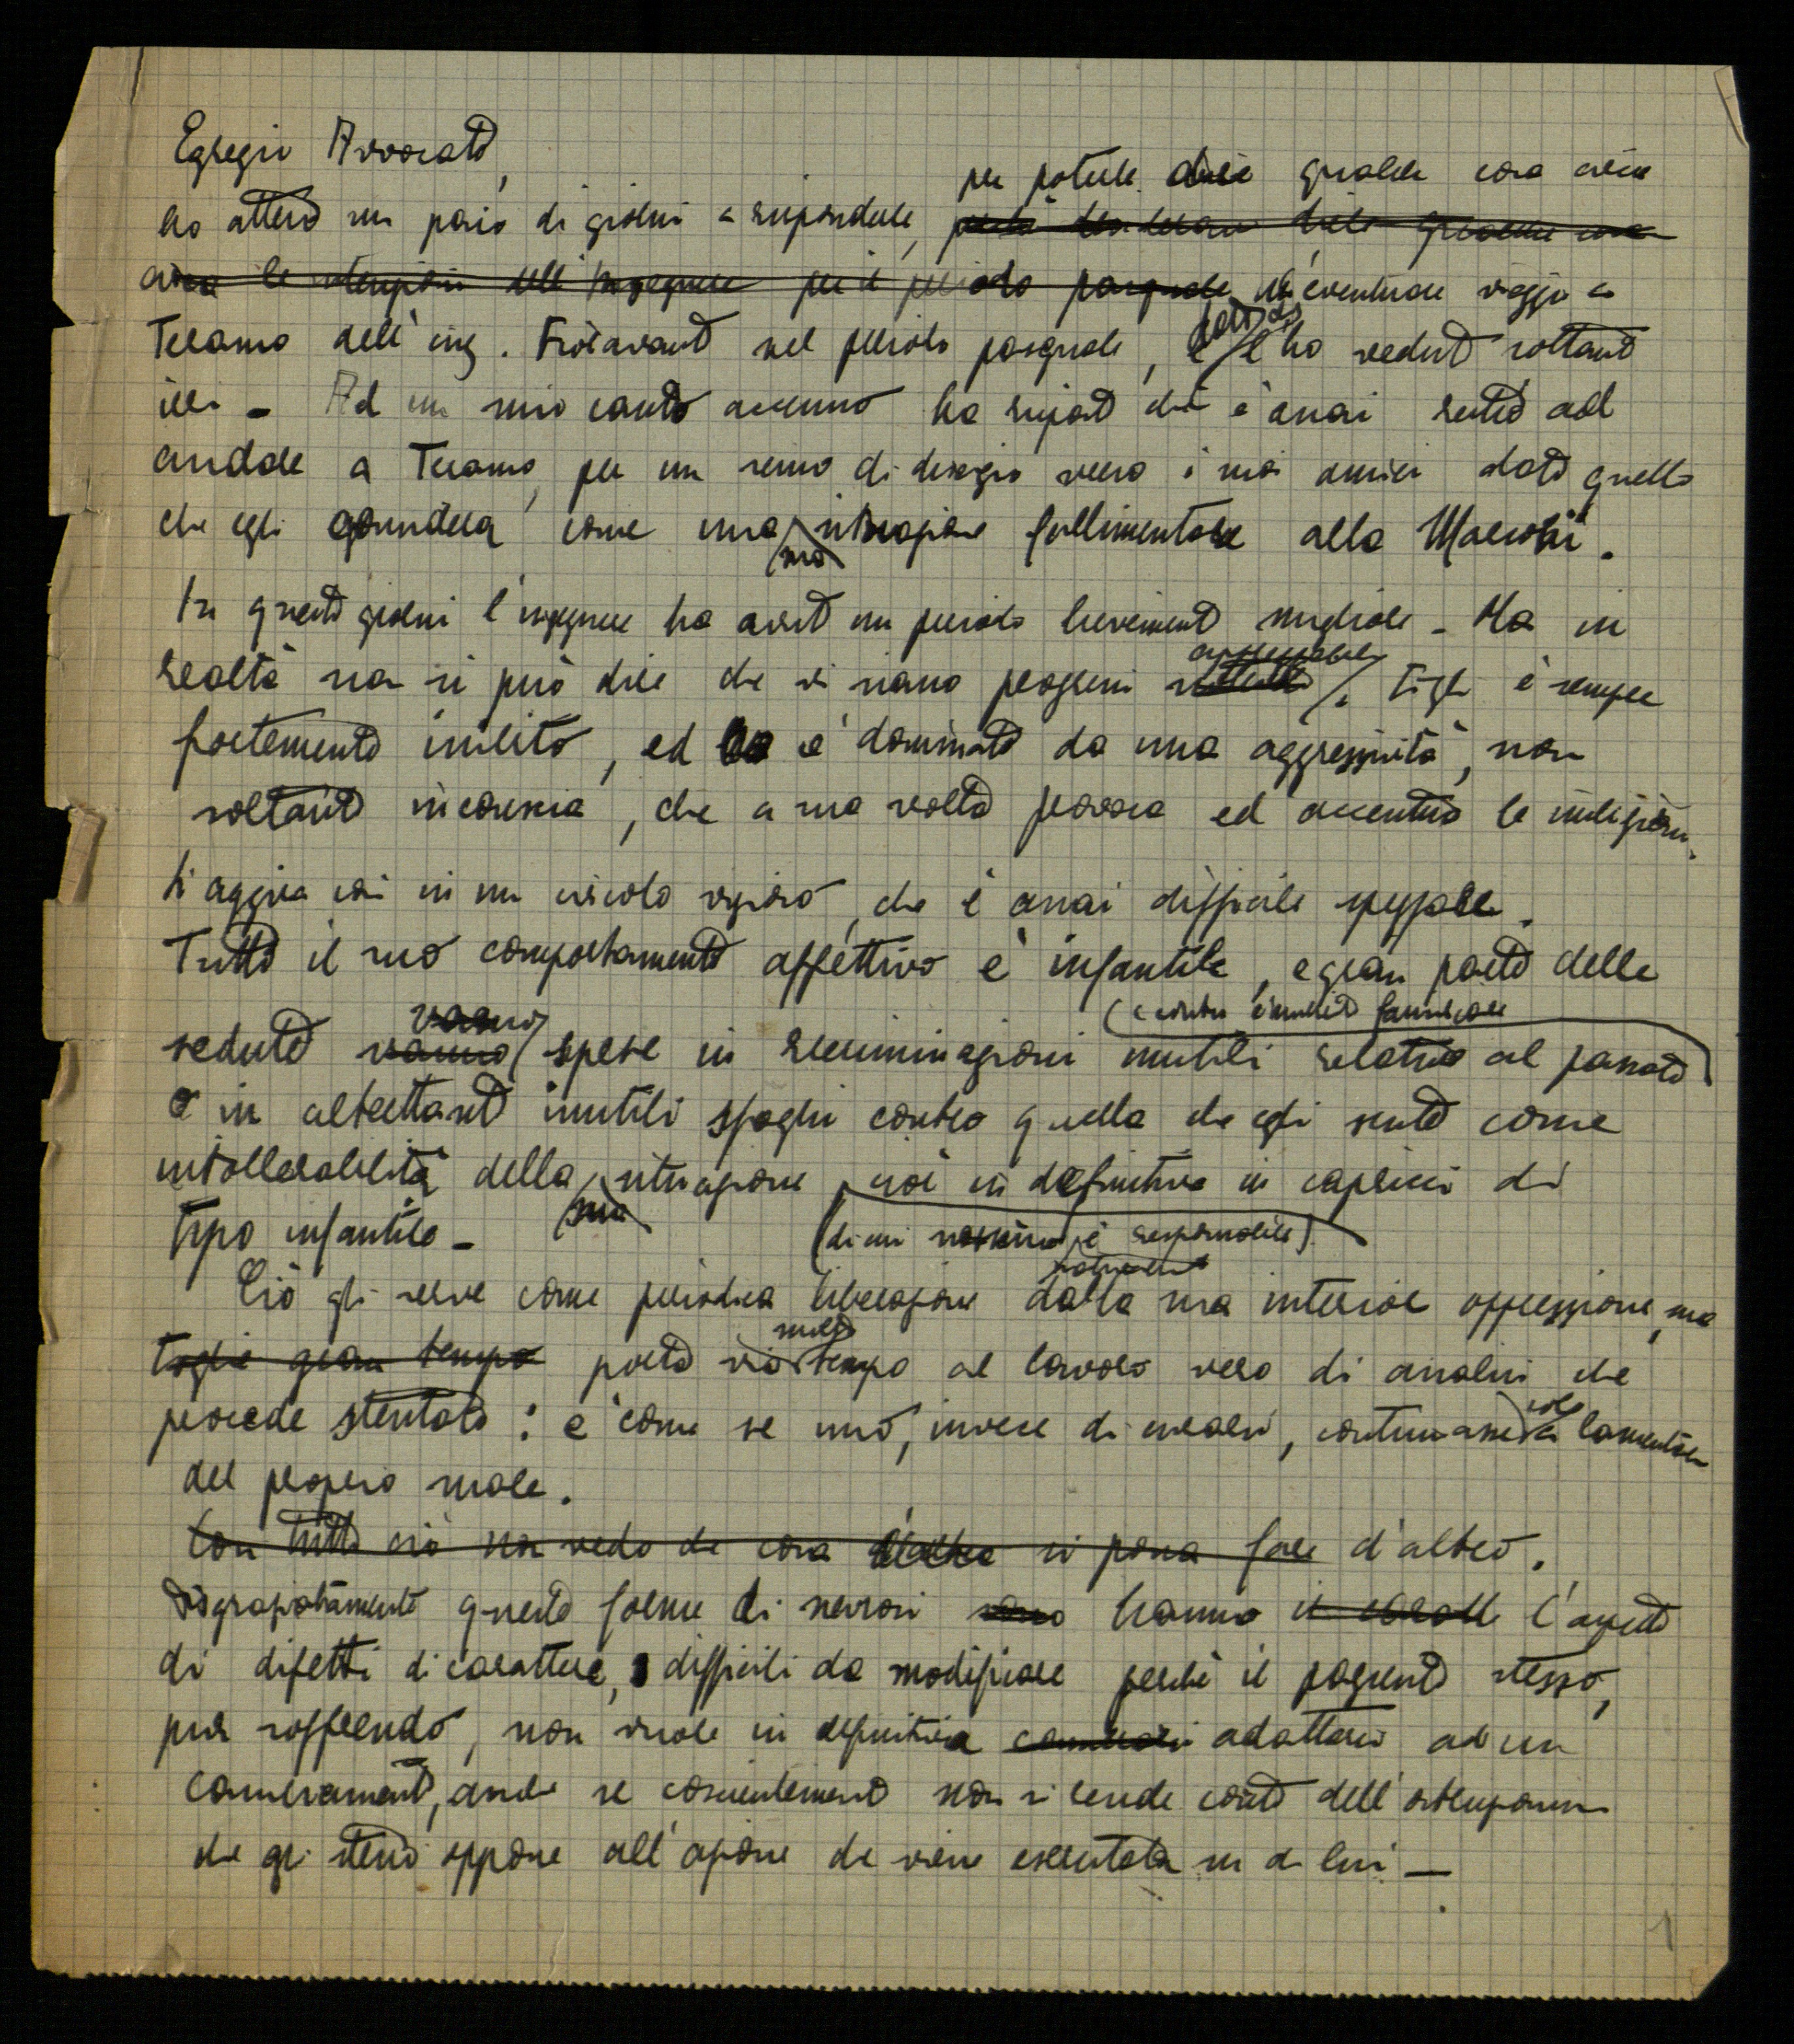 Egregio Avvocato,
per poterle dire qualche cosa circa
ho atteso un paio di giorni a risponderle, perché desideravo dirle qualche cosa
circa le intenzioni dell'Ingegnere per il periodo pasquale eventuale viaggio a
Teramo dell'ing. nel periodo pasquale, e l'ho veduto soltanto
ieri - Ad un mio cauto accenno ha risposto che è assai restio ad
andare a Teramo, per un senso di disagio verso i suoi amici dato quello
che egli considera come una situazione fallimentare alla
sua
In questi giorni l'ingegnere ha avuto un periodo lievemente migliore - Ma in
apprezzabili
realtà non si può dire che vi siano progressi Egli è sempre
fortemente inibito, ed è dominato da una aggressività, non
soltanto inconscia, che a sua volta provoca ed accentua le inibizioni.
Si aggira così in un circolo vizioso, che è assai difficile spezzare.
Tutto il suo comportamento affettivo è infantile, e gran parte delle
(e contro l'ambiente famigliare
vanno
sedute vanno spese in recriminazioni inutili relative al passato
o in altrettanto inutili sfoghi contro quella che egli sente come
intollerabilità della situazione, cioè in definitiva in capricci di
sua
tipo infantile - (di cui nessuno è responsabile)
Ciò gli serve come periodica liberazione dalla sua interiore oppressione, ma
molto
toglie gran tempo porta via tempo al lavoro vero di analisi che
solo
procede stentato: è come se uno, invece di curarsi, continuasse a lamentarsi
del proprio male.
Con tutto ciò non vedo che cosa d'altro si possa fare d'altro.
Disgraziatamente queste forme di nevrosi sono hanno l'aspetto
di difetti di carattere, difficili da modificare perché il paziente stesso,
pur soffrendo, non vuole in definitiva cambiarsi adattarsi ad un
cambiamento, anche se coscientemente non si rende conto dell'ostruzionismo
che egli stesso oppone all'azione che viene esercitata su di lui -
1